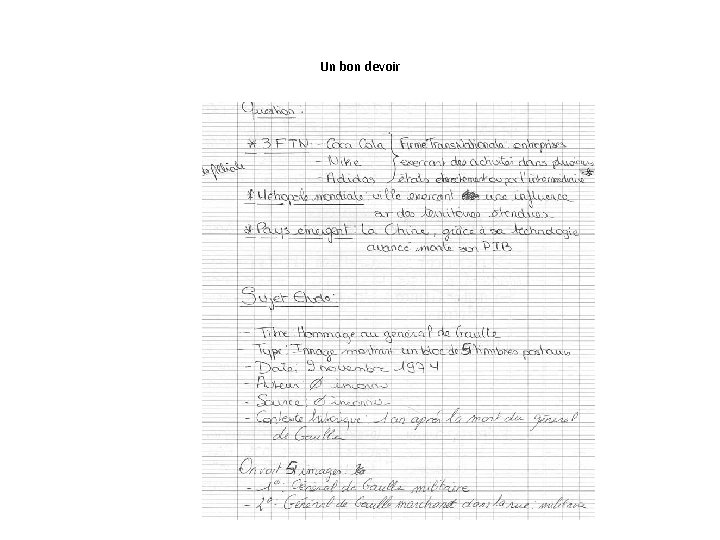 Un bon devoir
Question :
* 3 FTN : - Coca Cola Firme Transnationale : entreprises
- Nike exercant des activités dans plusieurs
- Adidas états directement ou par l'intermédiaire *
de filiale
* Métropole mondiale : ville exercant une influence
sur des territoires étendues
* Pays emergent : la Chine, grâce à sa technologie
avancé monte son PIB
Sujet Etude :
- Titre : Hommage au général de Gaulle
- Type : Image montrant un bloc de 5 timbres postaux
- Date : 9 novembre 1974
- Auteur : Ø inconnu
- Source : Ø inconnus
- Contexte historique : 1 an après la mort du général
de Gaulle
On voit 5 images :
- 1° : Général de Gaulle militaire
- 2° - Général de Gaulle marchant dans la rue : militaire